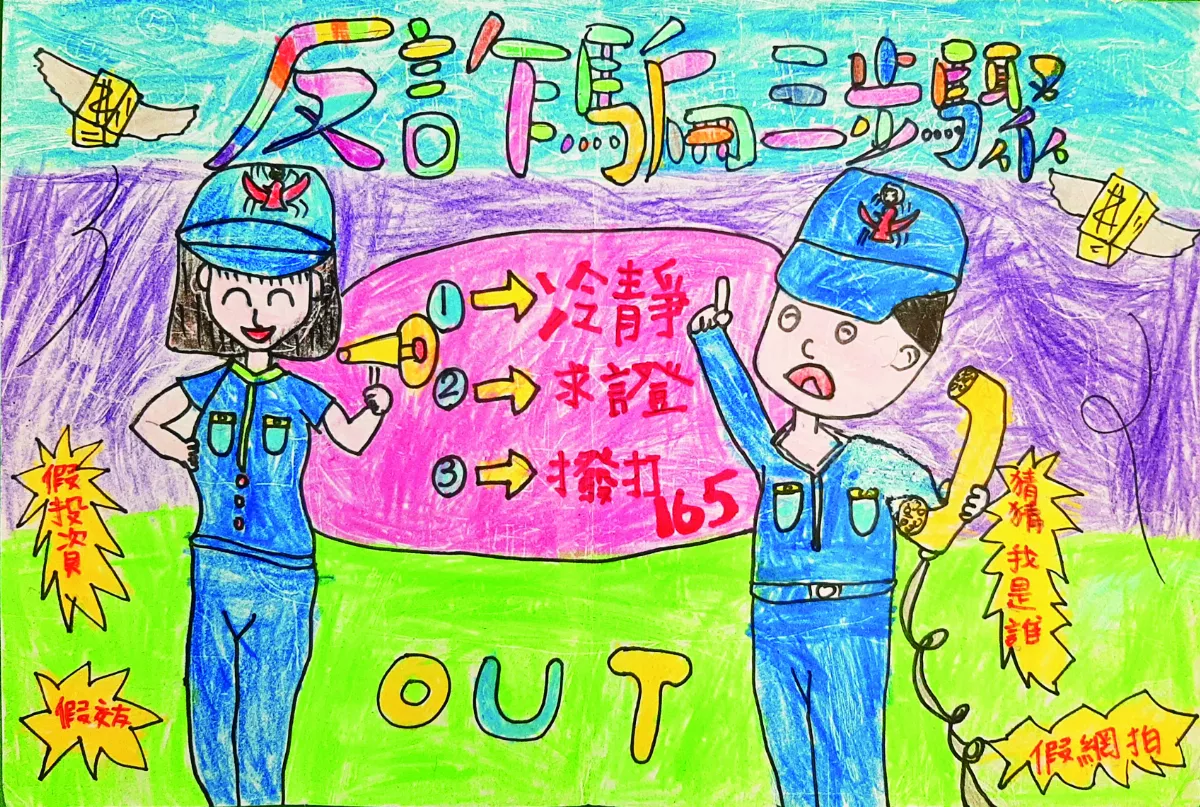 反詐騙三步驟
$
$
1 冷靜
2 求證
3 撥打165
假投資
猜猜我是誰
OUT
假交友
假網拍